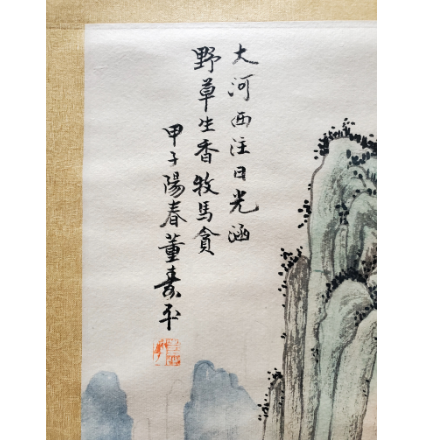 大河西注日光涵
野草生香牧馬貪
甲子陽春董壽平